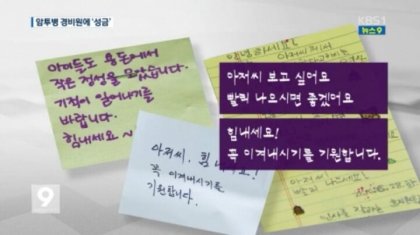 암투병 경비원에 '성금'
KBS1
뉴스9
아이들도 용돈에서
작은 정성을 모았습니다.
기적이 일어나기를
바랍니다.
힘내세요~
아저씨 보고 싶어요
빨리 나으시면 좋겠어요
힘내세요!
꼭 이겨내시기를 기원합니다.
아저씨, 힘내세요!
꼭 이겨내시기를
기원합니다.
9